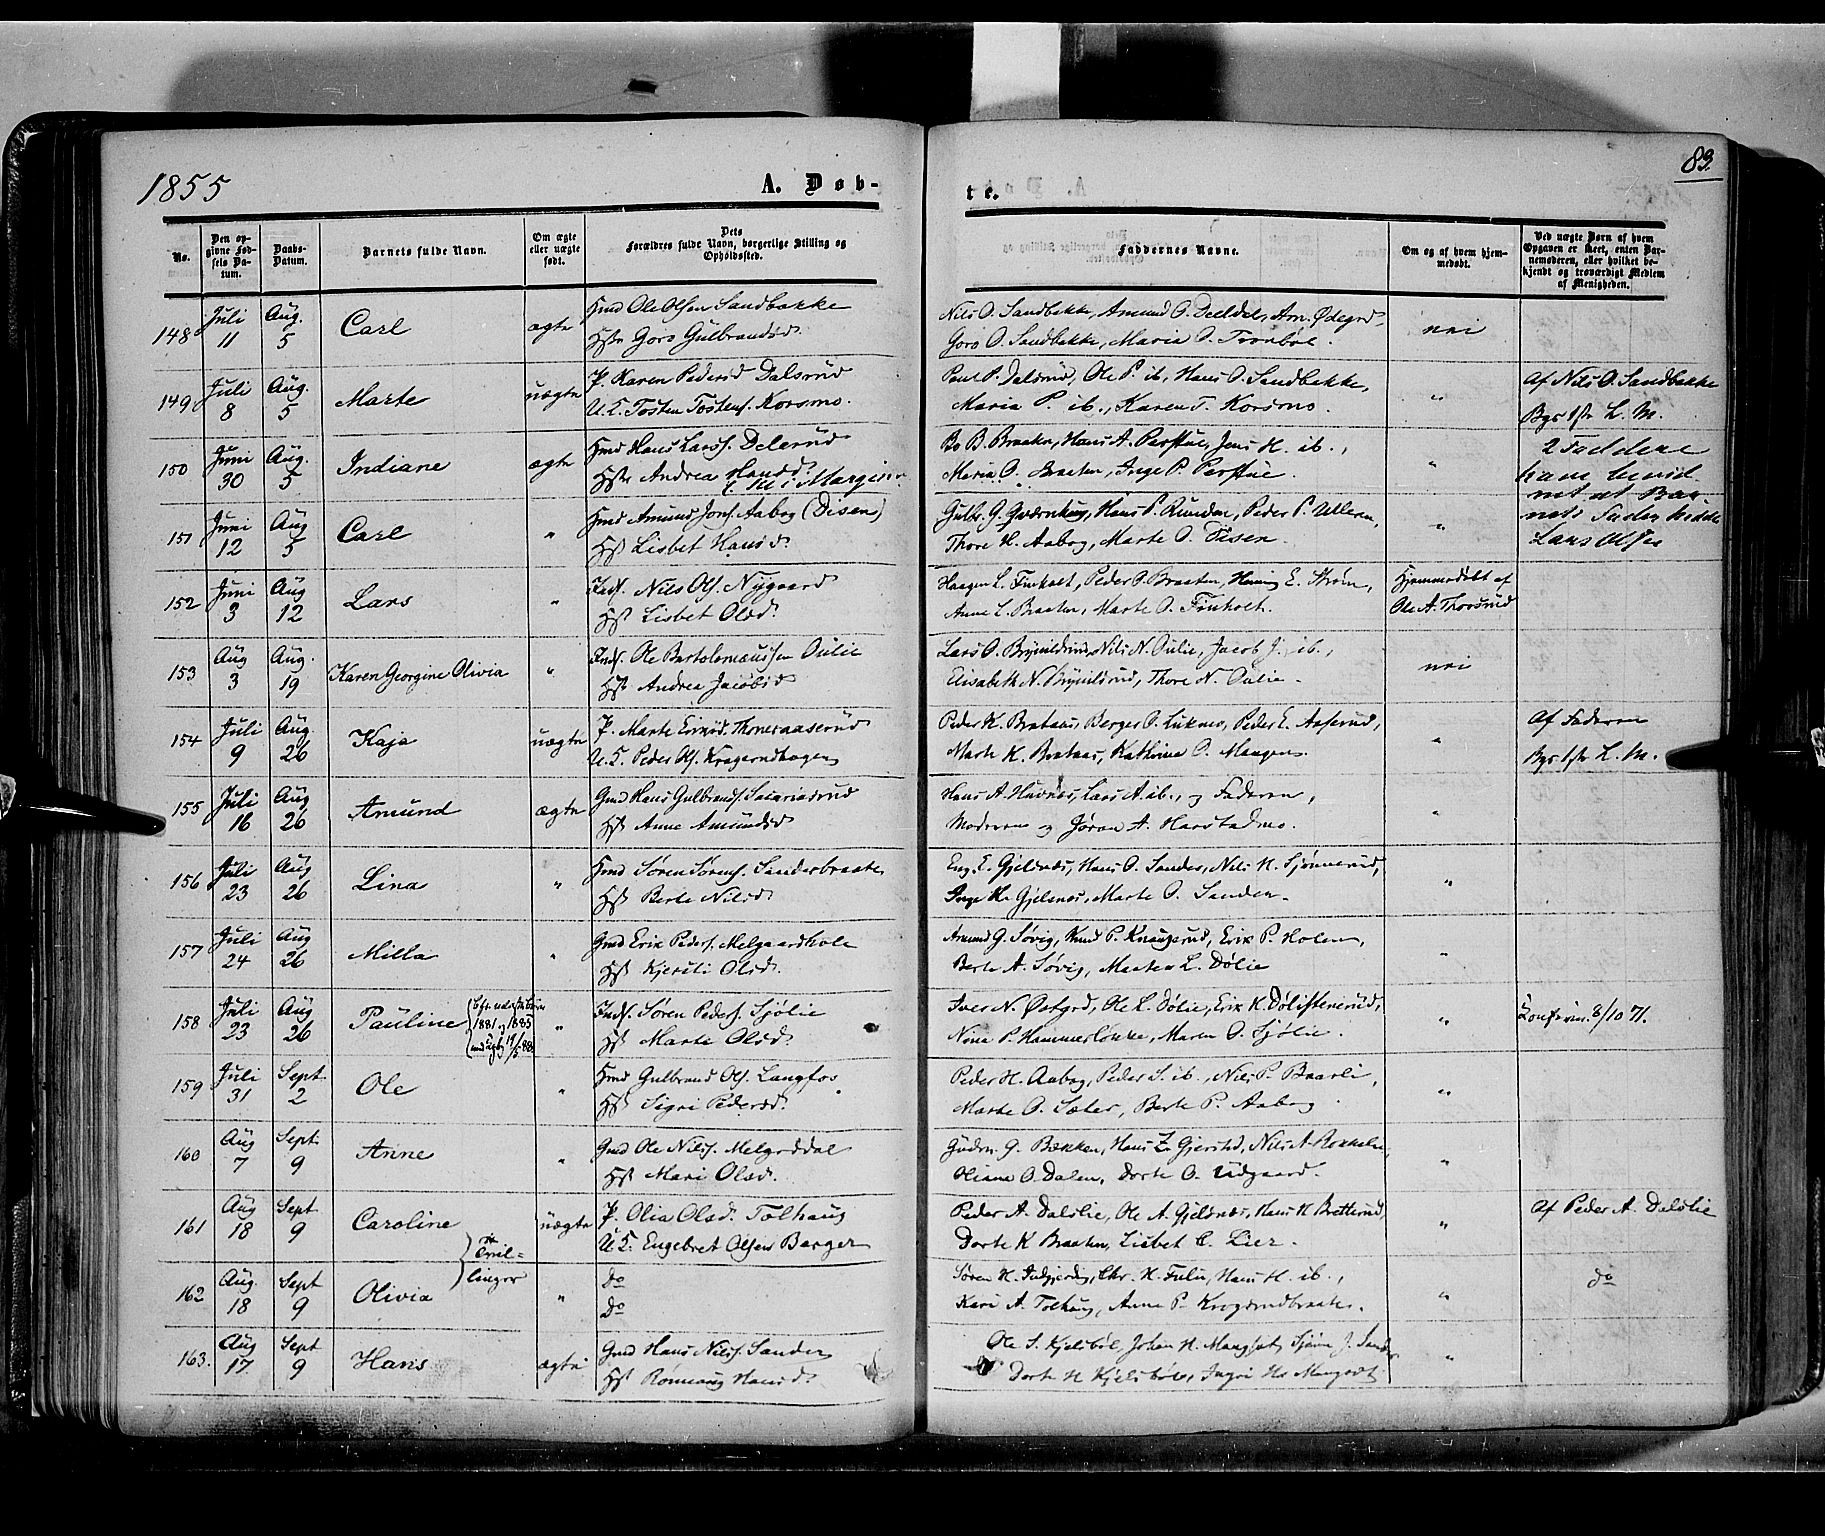 1855
A. Døb-
te.
83.
No.
Den op-
givne Fød-
sels Da-
tum.
Daabs-
Datum.
Barnets fulde Navn.
Om ægte
eller uægte
født.
Dets
Forældres fulde Navn, borgerlige Stilling og
Opholdssted.
Faddernes Navne.
Om og af hvem hjem-
medøbt.
Ved uægte Børn af hvem
Opgaven er skeet, enten Bar-
nemoderen, eller hvilket be-
kjendt og troværdigt Medlem
af Menigheden.
148 Juli 11 Aug. 5 Carl ægte
Hmd Ole Olsen Sandbakke
Hst Goro Gulbrandsd.
Nils O. Sandbakke, Amund O. Deeldel, Am. Ødegrd,
Goro O. Sandbakke, Maria O. Tronbøl.
nei
149 Juli 8 Aug. 5 Marte uægte
P. Karen Pedersd Dalsrud
U.K. Tosten Tostens. Korsmo.
Poul P. Dalsrud, Ole P. ib., Hans O. Sandbakke,
Maria P. ib., Karen T. Korsmo.
"
Af Nils O. Sandbakke
Bgs 1ste L. M.
150 Juni 30 Aug. 5 Indiane ægte
Hmd Hans Larss. Delerud
Hst Andrea Hansd.
Bo B. Braaten, Hans A. Perstue, Jens H. ib.,
Maria O. Braaten, Inge P. Perstue.
"
2 Faddere
151 Juni 12 Aug 5 Carl "
Hmd Amund Jons. Aabog (Disen)
Hst Lisbet Hansd.
Gulbr. G. Qværnhaug, Hans P. Runden, Peder P. Ulleren,
Thore H. Aabog, Marte O. Disen.
"
Lars Olsen
152 Juni 3 Aug 12 Lars "
Inds. Nils Ols. Nygaard
Hst Lisbet Olsd.
Haagen L. Finholt, Peder O. Braaten, Henning E. Strøm,
Anne L. Braaten, Marte O. Finholt.
Hjemmedøbt af
Ole A. Thorsrud
153 Aug 3 Aug. 19 Karen Georgine Olivia "
Inds. Ole Bartolomæussen Oulie
Hst Andrea Jacobsd
Lars O. Brynildsrud, Nils N. Oulie, Jacob J. ib.,
Elisabeth N. Brynildsrud, Thore N. Oulie.
nei
154 Juli 9 Aug. 26 Kaja uægte
P. Marte Eriksd. Thoneraaserud
U.K. Peder Ols. Kragerudhagen
Peder K. Brataas, Berger O. Lukmo, Peder E. Aaserud,
Marte K. Brataas, Kathrine O. Mangen.
"
Af Faderen
Bgs 1ste L. M.
155 Juli 16 Aug 26 Amund ægte
Gmd Hans Gulbrands. Sacariasrud
Hst Anne Amundsd
Hans A. Huvnes, Lars A. ib., og Faderen,
Moderen og Jøran A. Harstadmo.
"
156 Juli 23 Aug 26 Lina "
Hmd Søren Sørens. Sanderbraaten
Hst Berte Nilsd.
Eng. E. Gjelsnes, Hans O. Sander, Nils H. Sjønnerud,
Inge H. Gjelsnes, Marte O. Sander.
"
157 Juli 24 Aug 26 Milla "
Gmd Erik Peders. Melgaardhole
Hst Kjersti Olsd.
Amund G. Søvig, Knud P. Knaugerud, Erik P. Holen,
Berte A. Søvig, Marten L. Dølie
"
158 Juli 23 Aug 26 Pauline "
1881 og 1885
Inds. Søren Peders. Sjølie
Hst Marte Olsd.
Iver N. Østgrd, Ole L. Dølie, Erik K. Dølistenerud,
Nina P. Hammerlokke, Maren O. Sjølie.
"
Confirm. 8/10 71.
159 Juli 31 Sept 2 Ole "
Hmd Gulbrand Ols. Langfos
Hst Sigri Pedersd.
Peder H. Aabog, Peder S. ib., Nils P. Baarli,
Marte O. Sæter, Berte P. Aabog
"
160 Aug 7 Sept. 9 Anne "
Gmd Ole Nilss. Melgrddal
Hst Mari Olsd.
Gudm. G. Bækken, Hans Z. Gjerstd, Nils A. Bakkelie,
Oliane O. Dalen, Dorte O. Udgaard
"
161 Aug 18 Sept. 9 Caroline uægte
Tvil-
linger
P. Olia Olsd. Tolhaug
U.K. Engebret Olsen Berger
Peder A. Dalslie, Ole A. Gjelsnes, Hans K. Bretterud,
Dorte K Braaten, Lisbet C. Lier.
"
Af Peder A. Dalslie
162 Aug. 18 Sept 9 Olivia "
Do
Do
Søren H. Indgjerdig, Chr. H. Fulu, Hans H. ib.,
Kari A. Tolhaug, Anne P. Krogsrudbraaten.
"
do
163. Aug 17. Sept 9 Hans ægte
Gmd Hans Nilss. Sander
Hst Rønnaug Hansd.
Ole S. Kjelsbøl, Johan H. Mangset, Sjønn J. Sander
Dorte H Kjelsbøl, Ingri Hs Mangset
"